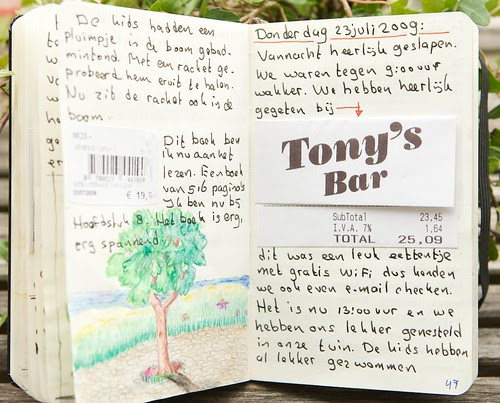 De kids hadden een
pluimpje in de boom gebad.
mintond. Met een racket ge-
probeerd hem eruit te halen.
Nu zit de racket ook in de
boom.
€ 19,95
Dit boek ben
ik nu aan het
lezen. Een boek
van 516 pagina's
Ik ben nu bij
Hoofdstuk 8. Het boek is erg,
erg spannend.
Donderdag 23 juli 2009:
Vannacht heerlijk geslapen.
We waren tegen 9:00 uur
wakker. We hebben heerlijk
gegeten bij
Tony's
Bar
SubTotal 23,45
I.V.A. 7% 1,64
TOTAL 25,09
dit was een leuk eettentje
met gratis WiFi dus konden
we ook even e-mail checken.
Het is nu 13:00 uur en we
hebben ons lekker genesteld
in onze tuin. De kids hebben
al lekker gezwommen
47